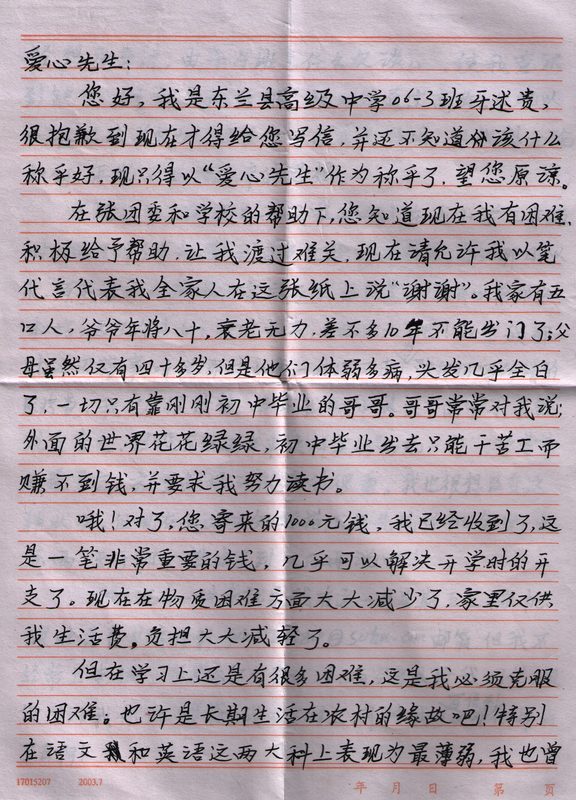 爱心先生:
您好,我是东兰县高级中学06-3班牙述贵,
很抱歉到现在才得给您写信,并还不知道份该什么
称乎好,现只得以“爱心先生”作为称乎了,望您原谅。
在张团委和学校的帮助下,您知道现在我有困难,
积极给予帮助,让我渡过难关,现在请允许我以笔
代言代表我全家人在这张纸上说“谢谢”。我家有五
口人,爷爷年将八十,衰老无力,差不多10年不能出门了;父
母虽然仅有四十多岁,但是他们体弱多病,头发几乎全白
了,一切只有靠刚刚初中毕业的哥哥。哥哥常常对我说:
外面的世界花花绿绿,初中毕业出去只能干苦工而
赚不到钱,并要求我努力读书。
哦!对了,您寄来的1000元钱,我已经收到了,这
是一笔非常重要的钱,几乎可以解决开学时的开
支了。现在在物质困难方面大大减少了,家里仅供
我生活费,负担大大减轻了。
但在学习上还是有很多困难,这是我必须克服
的困难。也许是长期生活在农村的缘故吧!特别
在语文和英语这两大科上表现为最薄弱,我也曾
17015207 2003.7 年 月 日 第 页